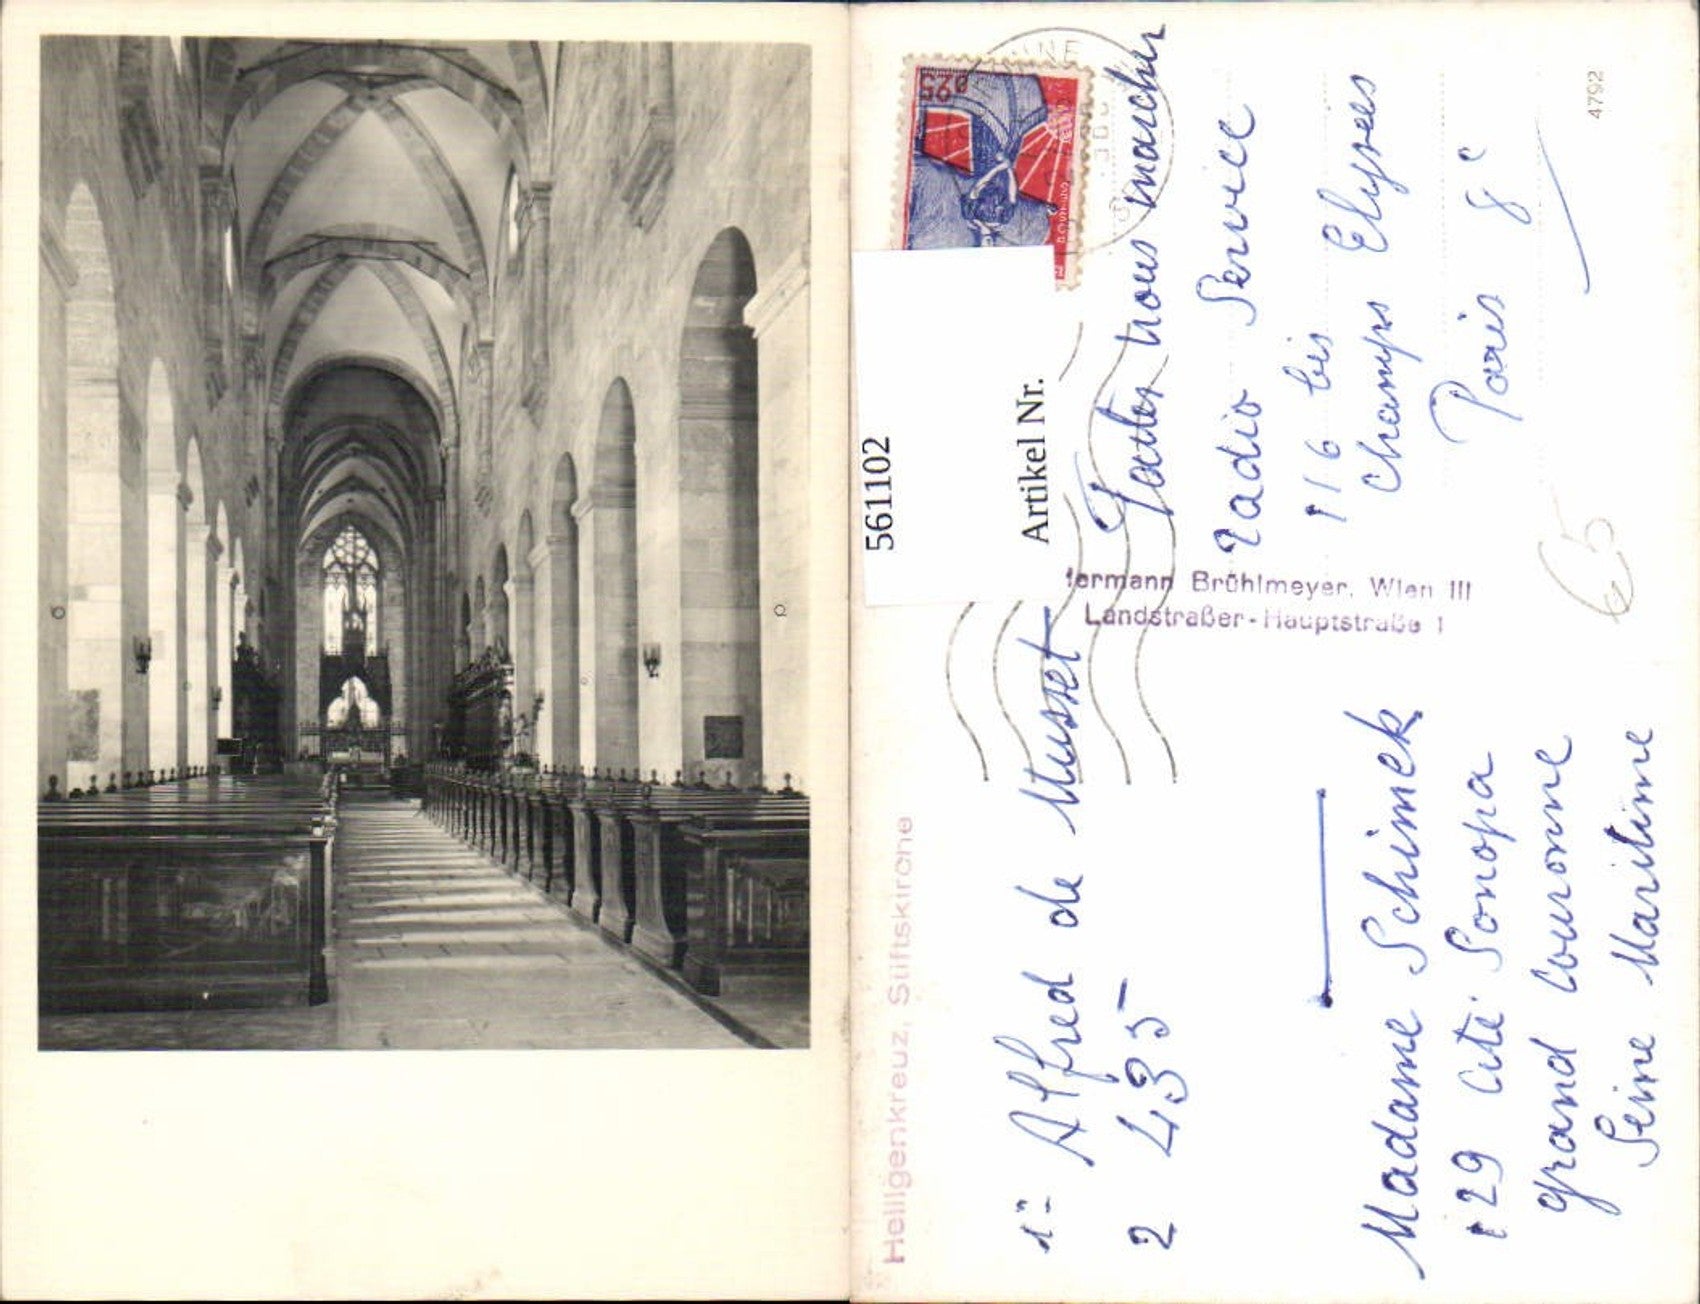 Heiligenkreuz, Stiftskirche
1° Alfred de Musset
2 435
Madame Schimek
129 cité Sonopa
Grand Couronne
Seine Maritime
561102
Artikel Nr.
Hermann Brühlmeyer, Wien III
Landstraßer-Hauptstraße 1
0,25
Faites nous marcher
Radio Service
116 bis
Champs Elysées
Paris 8e
4792
65